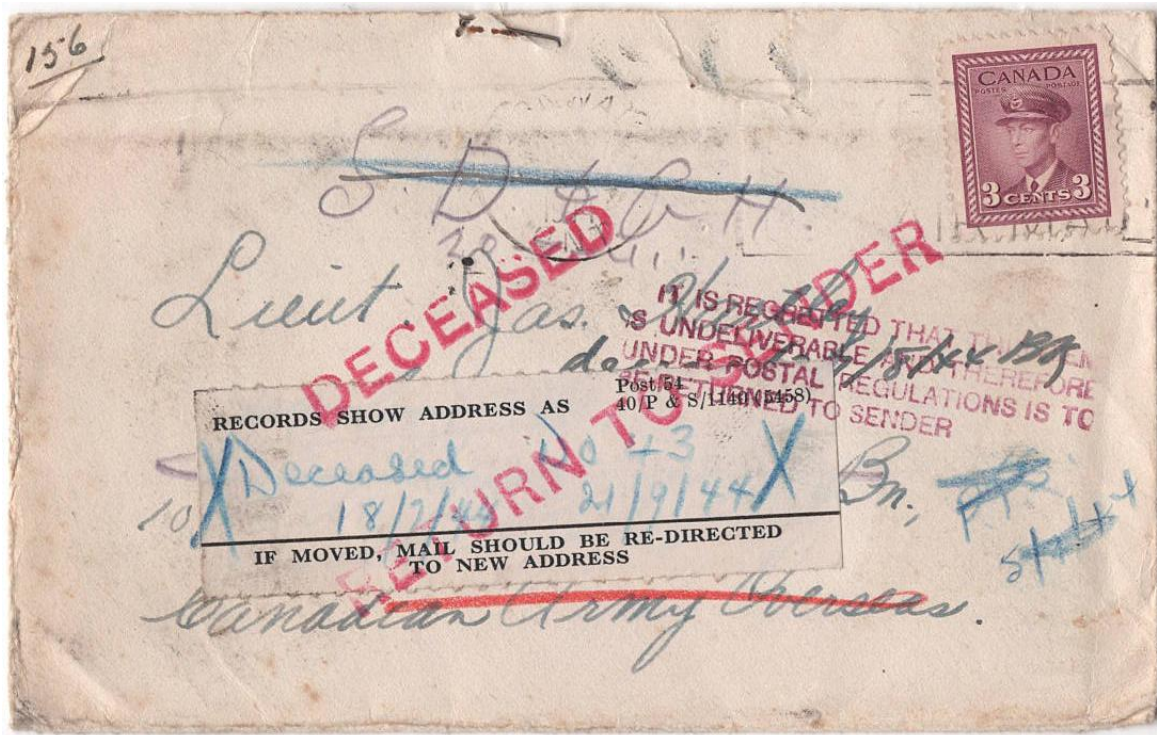 156
CANADA
POSTES POSTAGE
3 CENTS 3
S. D & G. H.
Lieut. Jas.
DECEASED
RETURN TO SENDER
IT IS REGRETTED THAT THIS ITEM
IS UNDELIVERABLE AND THEREFORE
UNDER POSTAL REGULATIONS IS TO
BE RETURNED TO SENDER
Post 54
40/P & S/1140 (5458)
RECORDS SHOW ADDRESS AS
Deceased
18/7/44 21/9/44
Bn.,
IF MOVED, MAIL SHOULD BE RE-DIRECTED
TO NEW ADDRESS
Canadian Army Overseas.